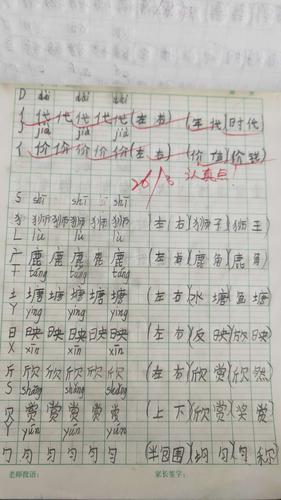 D dài dài dài
亻代代代代代(左右)(年代)(时代)
J jià jià jià
亻价价价价价(左右)(价值)(价钱)
26/3 认真点
S shī shī
犭狮狮狮狮(左右)(狮子)(狮王)
L lù lù
广鹿鹿鹿鹿(左右)(鹿角)(鹿角)
T táng táng
土塘塘塘塘(左右)(水塘)(鱼塘)
Y yìng yìng
日映映映映映(左右)(反映)(放映)
X xīn xīn
斤欣欣欣欣欣(左右)(欣赏)(欣然)
S shǎng shǎng
贝赏赏赏赏(上下)(欣赏)(奖赏)
Y yún yún
勹匀匀匀匀(半包围)(均匀)(匀称)
老师批语： 家长签字：